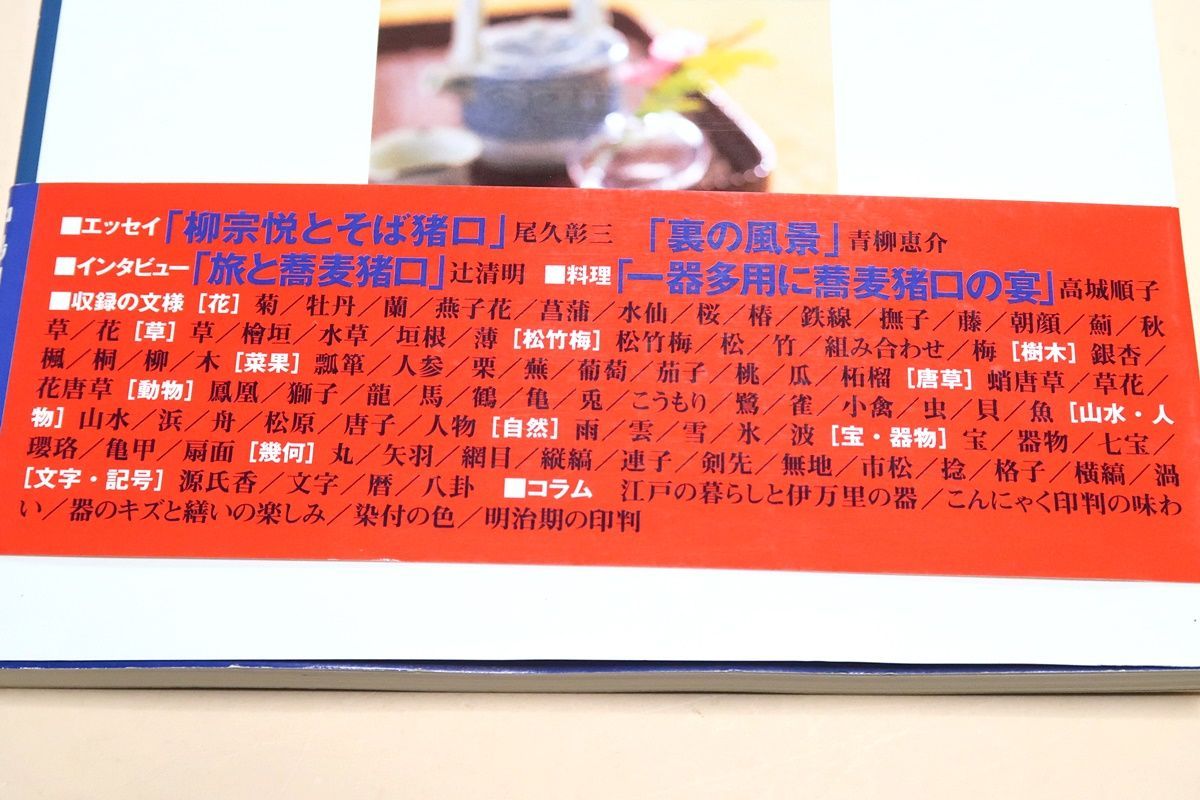 ■エッセイ「柳宗悦とそば猪口」尾久彰三 「裏の風景」青柳恵介
■インタビュー「旅と蕎麦猪口」辻清明 ■料理「一器多用に蕎麦猪口の宴」高城順子
■収録の文様 [花] 菊／牡丹／蘭／燕子花／菖蒲／水仙／桜／椿／鉄線／撫子／藤／朝顔／薊／秋
草／花 [草] 草／檜垣／水草／垣根／薄 [松竹梅] 松竹梅／松／竹／組み合わせ／梅 [樹木] 銀杏／
楓／桐／柳／木 [菜果] 瓢箪／人参／栗／蕪／葡萄／茄子／桃／瓜／柘榴 [唐草] 蛸唐草／草花／
花唐草 [動物] 鳳凰／獅子／龍／馬／鶴／亀／兎／こうもり／鷺／雀／小禽／虫／貝／魚 [山水・人
物] 山水／浜／舟／松原／唐子／人物 [自然] 雨／雲／雪／氷／波 [宝・器物] 宝／器物／七宝／
瓔珞／亀甲／扇面 [幾何] 丸／矢羽／網目／縦縞／連子／剣先／無地／市松／捻／格子／横縞／渦
[文字・記号] 源氏香／文字／暦／八卦 ■コラム 江戸の暮らしと伊万里の器／こんにゃく印判の味わ
い／器のキズと繕いの楽しみ／染付の色／明治期の印判